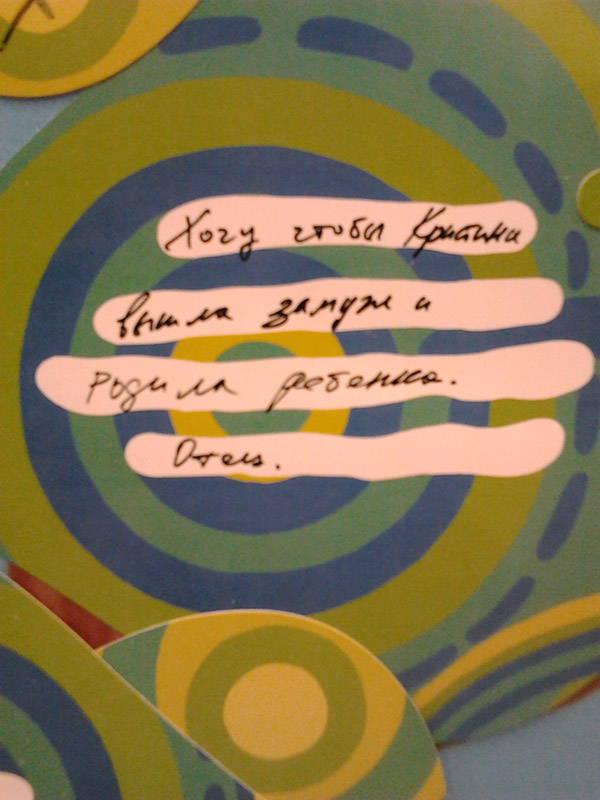 Хочу чтобы Кристина
вышла замуж и
родила ребенка.
Отец.